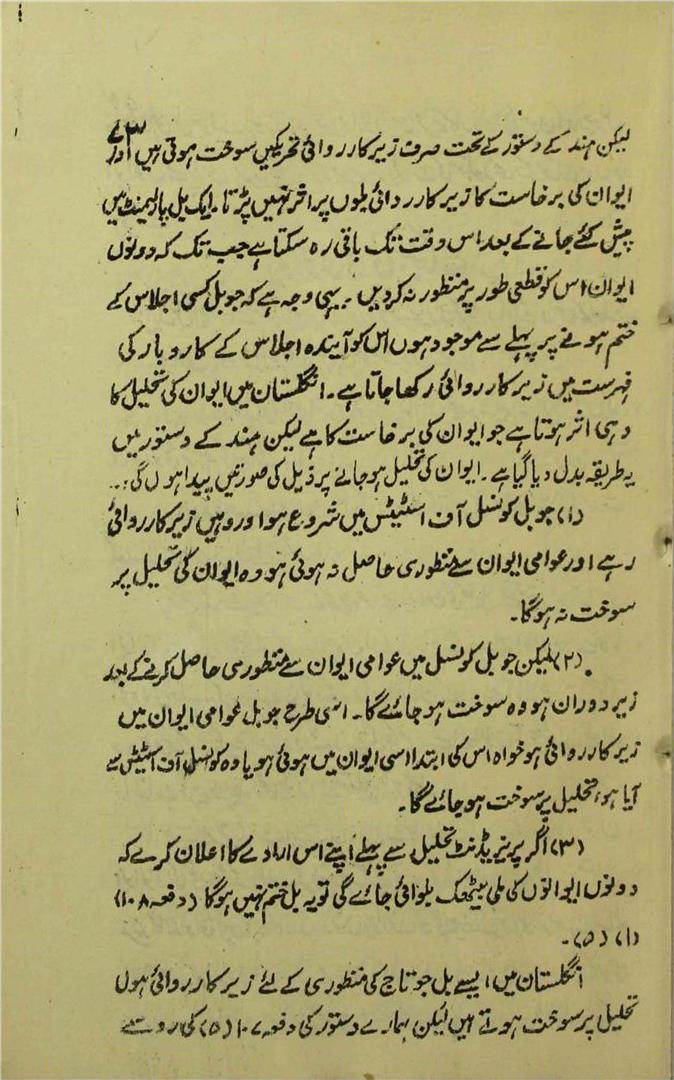 ۷۳
لیکن ہند کے دستور کے تحت صرف زیر کارروائی تحریکیں سوخت ہوتی ہیں اور
ایوان کی برخاست کا زیر کارروائی بلوں پر اثر نہیں پڑتا۔ ایک بل پارلیمنٹ میں
پیش کئے جانے کے بعد اس وقت تک باقی رہ سکتا ہے جب تک کہ دونوں
ایوان اس کو قطعی طور پر منظور نہ کردیں ۔ یہی وجہ ہے کہ جو بل کسی اجلاس کے
ختم ہونے پر پہلے سے موجود ہوں اس کو آیندہ اجلاس کے کاروبار کی
فہرست میں زیر کارروائی رکھا جاتا ہے۔ انگلستان میں ایوان کی تحلیل کا
وہی اثر ہوتا ہے جو ایوان کی برخاست کا ہے لیکن ہند کے دستور میں
یہ طریقہ بدل دیا گیا ہے۔ ایوان کی تحلیل ہو جانے پر ذیل کی صورتیں پیدا ہوں گی:۔
(۱) جو بل کونسل آف اسٹیٹس میں شروع ہوا اور وہیں زیر کارروائی
رہے اور عوامی ایوان سے منظوری حاصل نہ ہوئی ہو وہ ایوان کی تحلیل پر
سوخت نہ ہوگا۔
(۲) لیکن جو بل کونسل میں عوامی ایوان سے منظوری حاصل کرنے کے بعد
زیر دوران ہو وہ سوخت ہو جائے گا۔ اسی طرح جو بل عوامی ایوان میں
زیر کارروائی ہو خواہ اس کی ابتدا اسی ایوان میں ہوئی ہو یا وہ کونسل آف اسٹیٹس سے
آیا ہو، تحلیل پر سوخت ہو جائے گا۔
(۳) اگر پریزیڈنٹ تحلیل سے پہلے اپنے اس ارادے کا اعلان کرے کہ
دونوں ایوانوں کی ملی بیٹھک بلوائی جائے گی تو یہ بل ختم نہیں ہوگا (دفعہ ۱۰۸)
(۱) (۵)۔
انگلستان میں ایسے بل جو تاج کی منظوری کے لئے زیر کارروائی ہوں
تحلیل پر سوخت ہوتے ہیں لیکن ہمارے دستور کی دفعہ ۱۰۷ (۵) کی رو سے